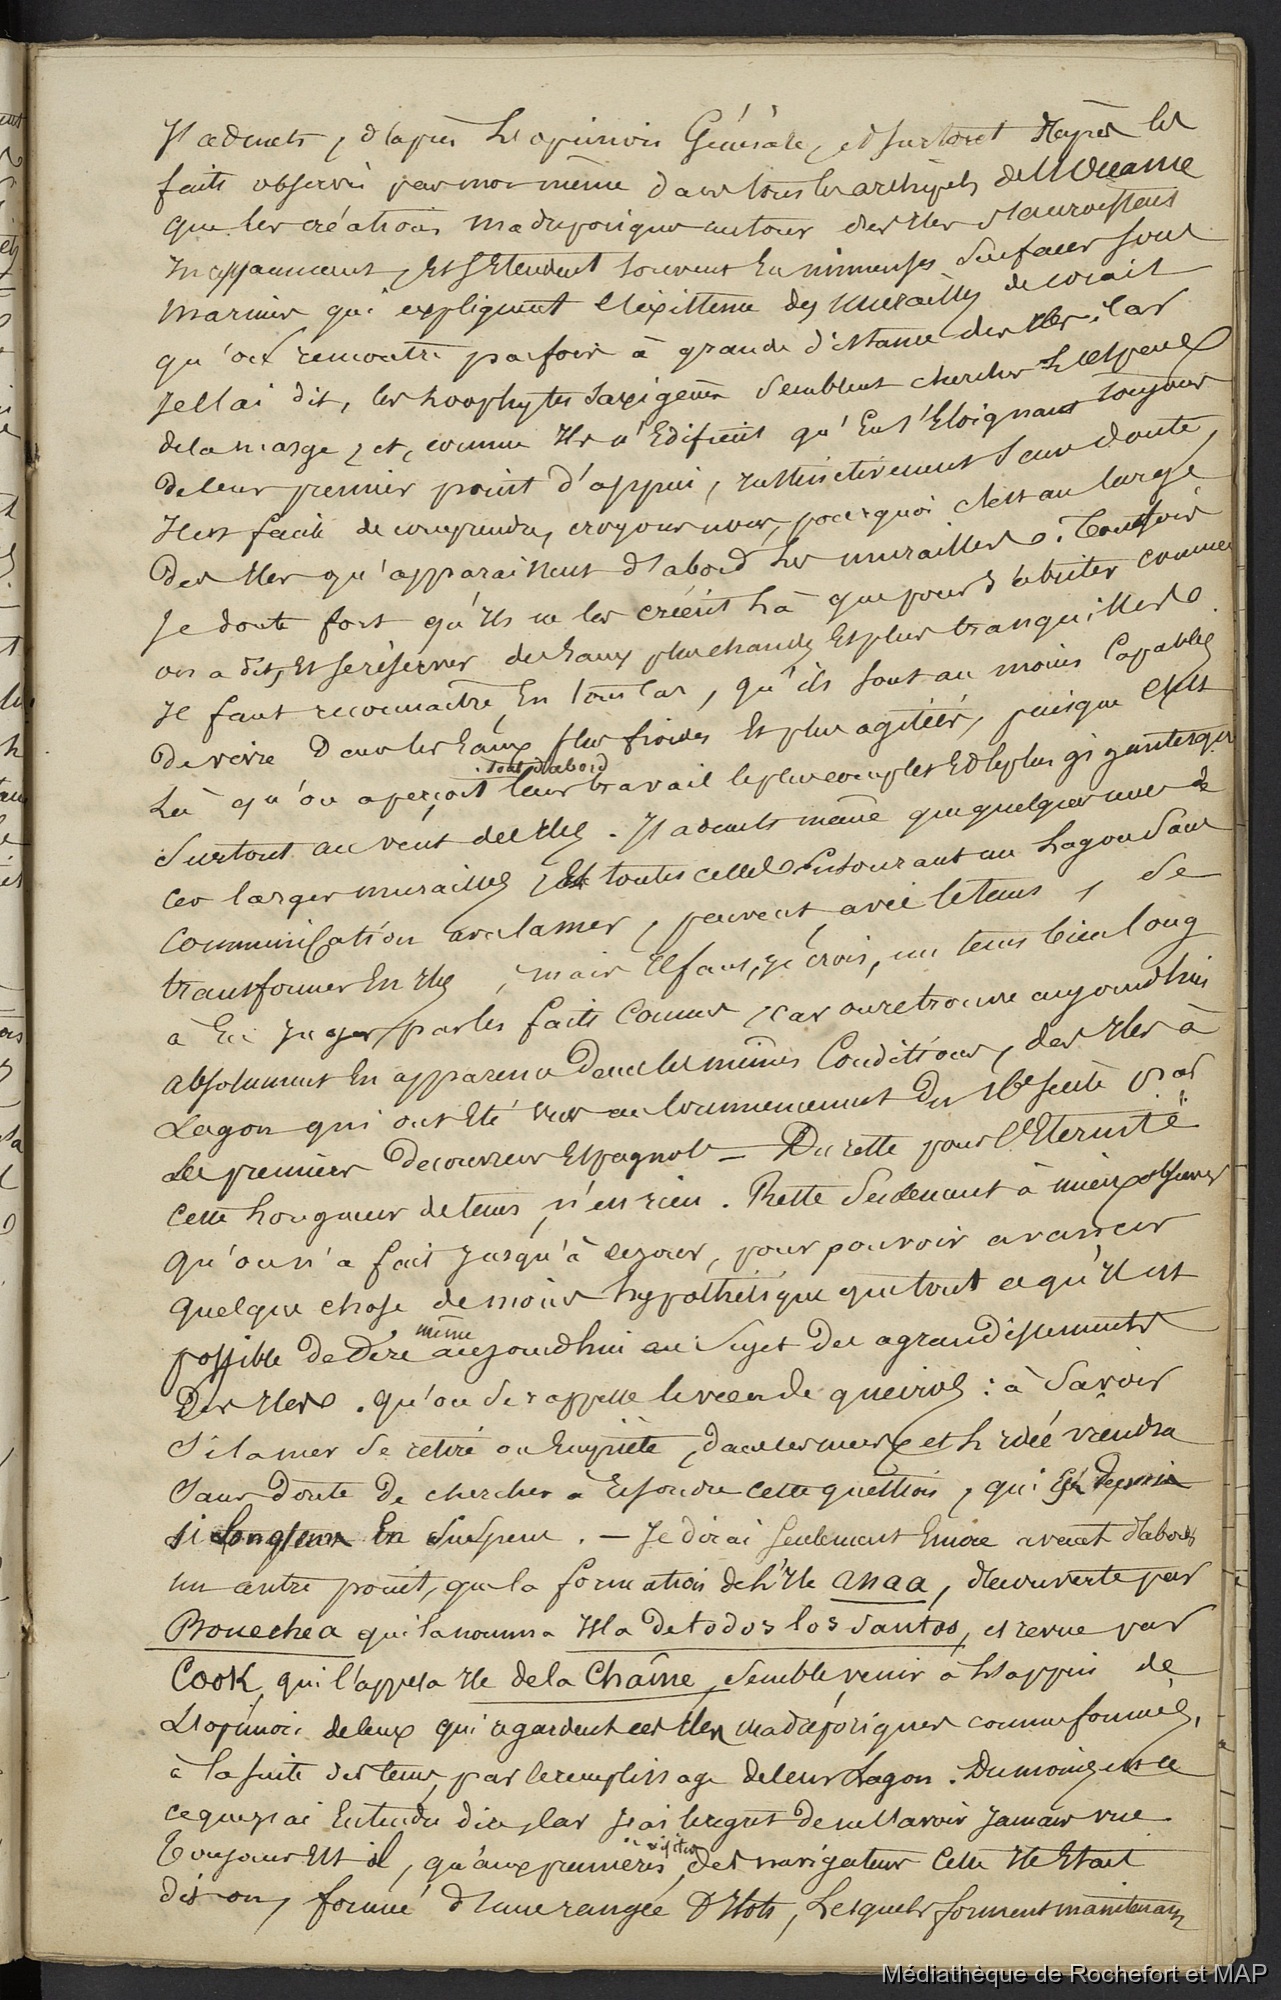 J'admets, d'après L'opinion Générale, et surtout d'après les
faits observés par moi-même dans tous les archipels de l'Océanie
que les créations madréporiques autour des Iles s'accroissent
incessamment, Et s'Etendent souvent En immenses surfaces sous
marines qui expliquent l'existence des murailles de corail
qu'on rencontre parfois à grande distance des Iles; Car
je l'ai dit, les zoophytes saxigènes semblent chercher L'espace
de la marge, et, comme Ils n'Edifient qu'En s'Eloignant toujours
de leur premier point d'appui, instinctivement sans doute,
Il est facile de comprendre, croyons nous, pourquoi c'est au large
Des Iles qu'apparaissent d'abord Les murailles. Toutefois
Je doute fort qu'Ils ne les créent Là que pour s'abriter comme
on a dit, Et se réserver des Eaux plus chaudes Et plus tranquilles.
Il faut reconnaître, En tous Cas, qu'ils sont au moins Capables
De vivre Dans les Eaux plus froides Et plus agitées, puisque c'Est
Là qu'on aperçoit tout d'abord leur travail le plus complet Et le plus gigantesque
surtout au vent des Iles. J'admets même que quelques unes de
ces larges murailles, Et toutes celles Entourant un Lagon sans
communication avec la mer, peuvent, avec le tems, se
transformer En Iles; mais Il faut, je crois, un tems bien long
à En juger par les faits connus, car on retrouve aujourd'hui
absolument En apparence Dans les mêmes Conditions, des Iles à
Lagon qui ont Eté vues au Commencement Du 16e siècle par
Les premiers Découvreurs Espagnols — Du reste pour l'Eternité
cette Longueur de tems n'est rien. Reste seulement à mieux observer
qu'on n'a fait jusqu'à ce jour, pour pouvoir avancer
quelque chose de moins hypothétique que tout ce qu'Il est
possible de Dire même aujourd'hui au sujet des agrandissements
Des Iles. Qu'on se rappelle le vœu de Queiros: à savoir
si la mer se retire ou Empiète, dans les mers, et L'idée viendra
sans doute De chercher à résoudre cette question, qui Est depuis
si longtems En suspens. — Je dirai seulement Encore avant d'aborder
un autre point, que la formation de L'Ile Anaa, découverte par
Bonechea qui la nomma Isla de todos los santos, et revue par
Cook, qui l'appela Ile de la Chaîne, semble venir à L'appui de
L'opinion de ceux qui regardent ces Iles madréporiques comme formées,
à la suite des tems, par le remplissage de leur Lagon. Du moins est ce
ce que j'ai Entendu dire, Car j'ai le regret De ne l'avoir jamais vue
Toujours Est il, qu'aux premières visites des navigateurs Cette Ile Etait
dit on, formée d'une rangée D'Ilots, Lesquels forment maintenant
Médiathèque de Rochefort et MAP